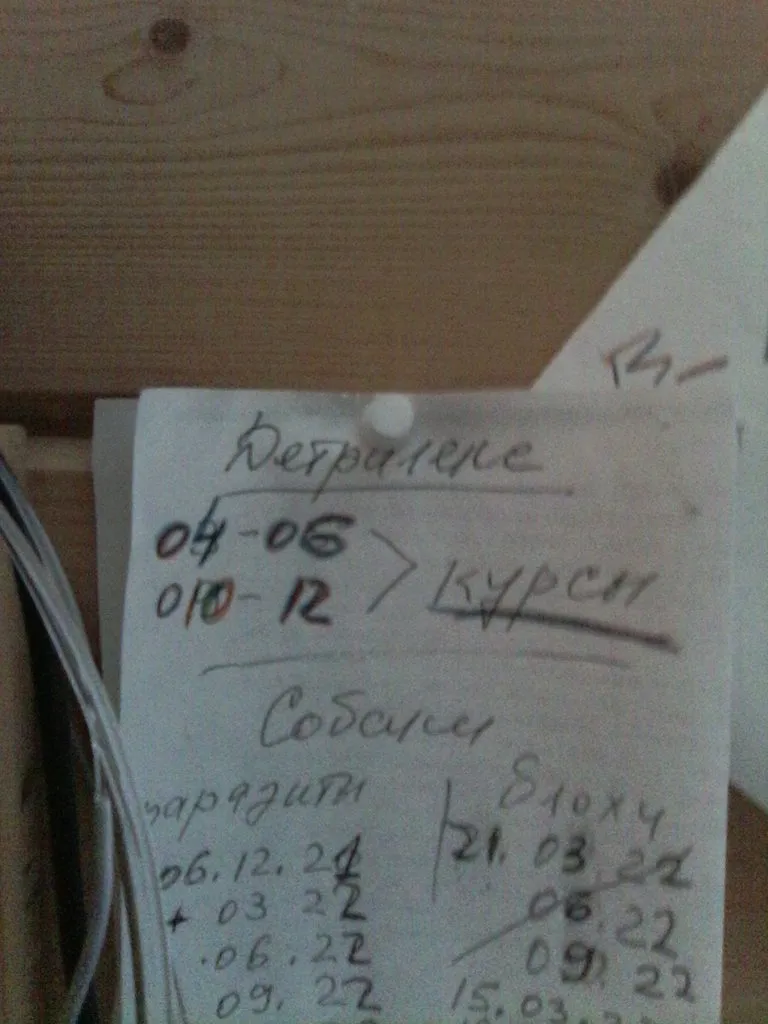 Детралекс
04-06
010-12 > курси
Собаки
паразити
блохи
06.12.22
21.03.22
+ 03 22
06.22
.06.22
09.22
09.22
15.03.